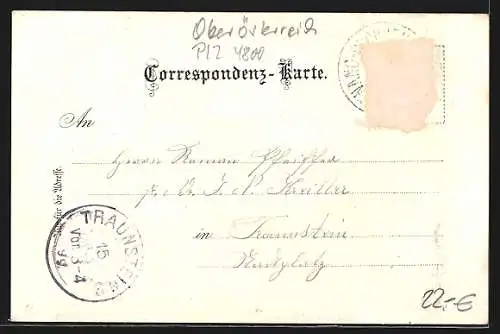 Oberösterreich
PLZ 4800
Correspondenz-Karte.
An
Herrn Roman Pfeiffer
J. N.
in Traunstein
Stadtplatz
für die Adresse.
TRAUNSTEIN
15
Vor. 3-4
99
22.-€